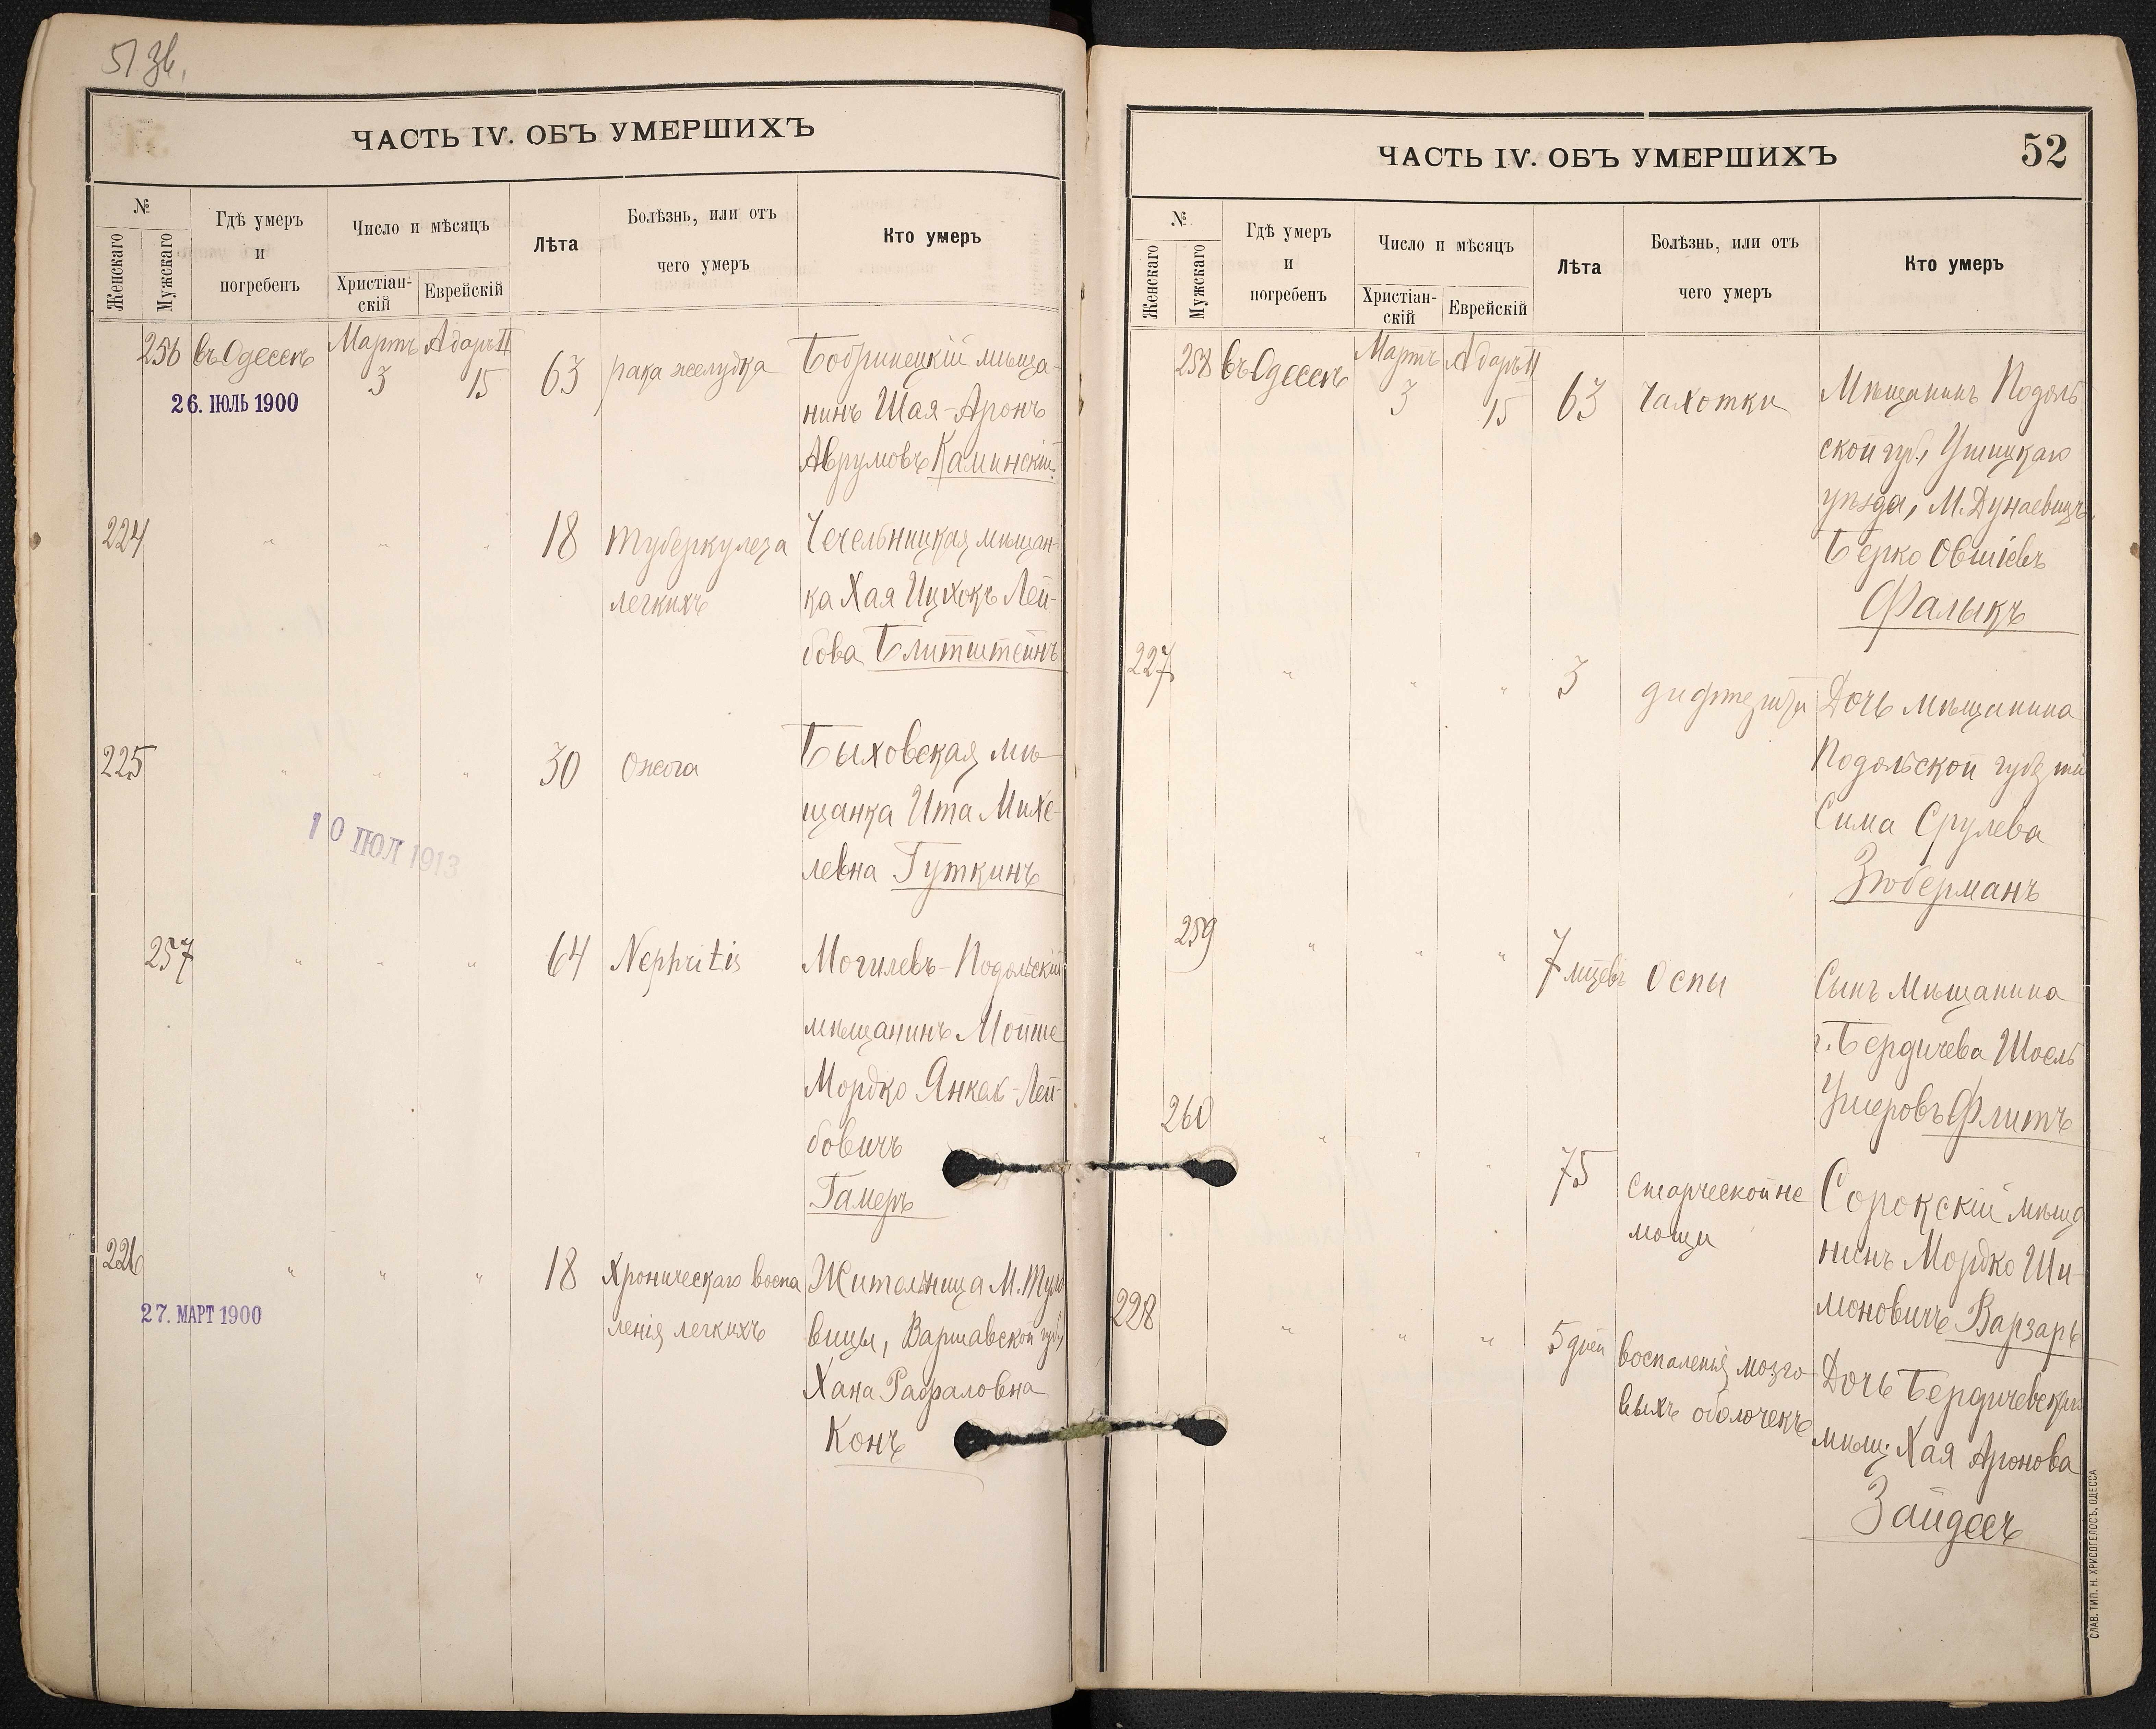 51 зв.
ЧАСТЬ IV. ОБЪ УМЕРШИХЪ
№
Женскаго
Мужскаго
Гдѣ умеръ
и
погребенъ
Число и мѣсяцъ
Христіан-
скій
Еврейскій
Лѣта
Болѣзнь, или отъ
чего умеръ
Кто умеръ
256 въ Одессѣ Мартъ 3 Адаръ II 15 63 рака желудка Бобринецкій мѣща-
26. ІЮЛЬ 1900
нинъ Шая-Аронъ
Аврумовъ Каминскій
224 " " " 18 туберкулеза Чечельницкая мѣщан-
легкихъ ка Хая Ицхокъ Лей-
бова Блитштейнъ
225 " " " 30 Ожога Быховская мѣ-
щанка Ита Михе-
левна Гуткинъ
10 ІЮЛ 1913
257 " " " 64 Nephritis Могилевъ-Подольскій
мѣщанинъ Мойше
Мордко Янкель-Лей-
бовичъ
Гамеръ
226 " " " 18 Хроническаго воспа Жительница М.
27. МАРТ 1900
ленія легкихъ вицы, Варшавской губ,
Хана Рафаловна
Конъ
ЧАСТЬ IV. ОБЪ УМЕРШИХЪ
52
№
Женскаго
Мужскаго
Гдѣ умеръ
и
погребенъ
Число и мѣсяцъ
Христіан-
скій
Еврейскій
Лѣта
Болѣзнь, или отъ
чего умеръ
Кто умеръ
258 въ Одессѣ Мартъ 3 Адаръ II 15 63 Чахотки Мѣщанинъ Подоль
ской губ, Ушицкаго
уѣзда, М. Дунаевицъ,
Берко Овшіевъ
Фалыкъ
227 " " " 3 дифтерита Дочь мѣщанина
Подольской губерніи
Сима Срулева
Зюберманъ
259 " " " 7 мѣцевъ Оспы Сынъ Мѣщанина
г. Бердичева Шоель
Ушеровъ Флитъ
260 " " " 75 Старческой не Сорокскій мѣща
мощи нинъ Мордко Ши-
моновичъ Варзаръ
228 " " " 5 дней воспаленія мозго Дочь Бердичевскаго
выхъ оболочекъ мѣщ. Хая Аронова
Зайдесъ
СЛАВ. ТИП. Н. ХРИСОГЕЛОСЪ, ОДЕССА